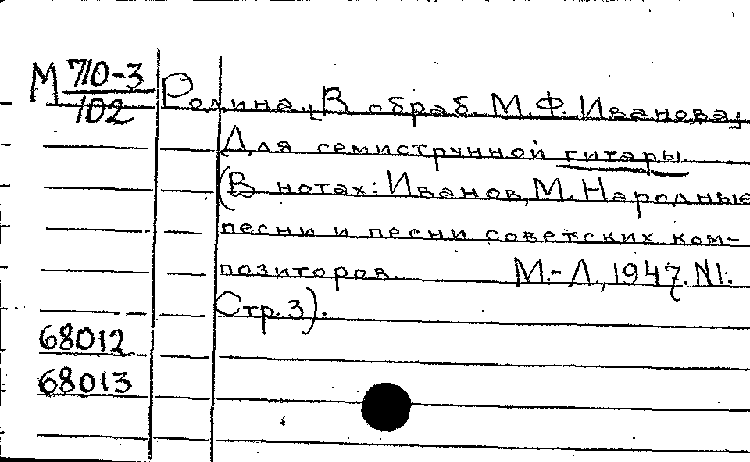 М 710-3
102
Родина. [В обраб. М.Ф. Иванова]
Для семиструнной гитары.
(В нотах: Иванов, М. Народные
песни и песни советских ком-
позиторов. М.-Л., 1947. №1.
Стр. 3).
68012
68013